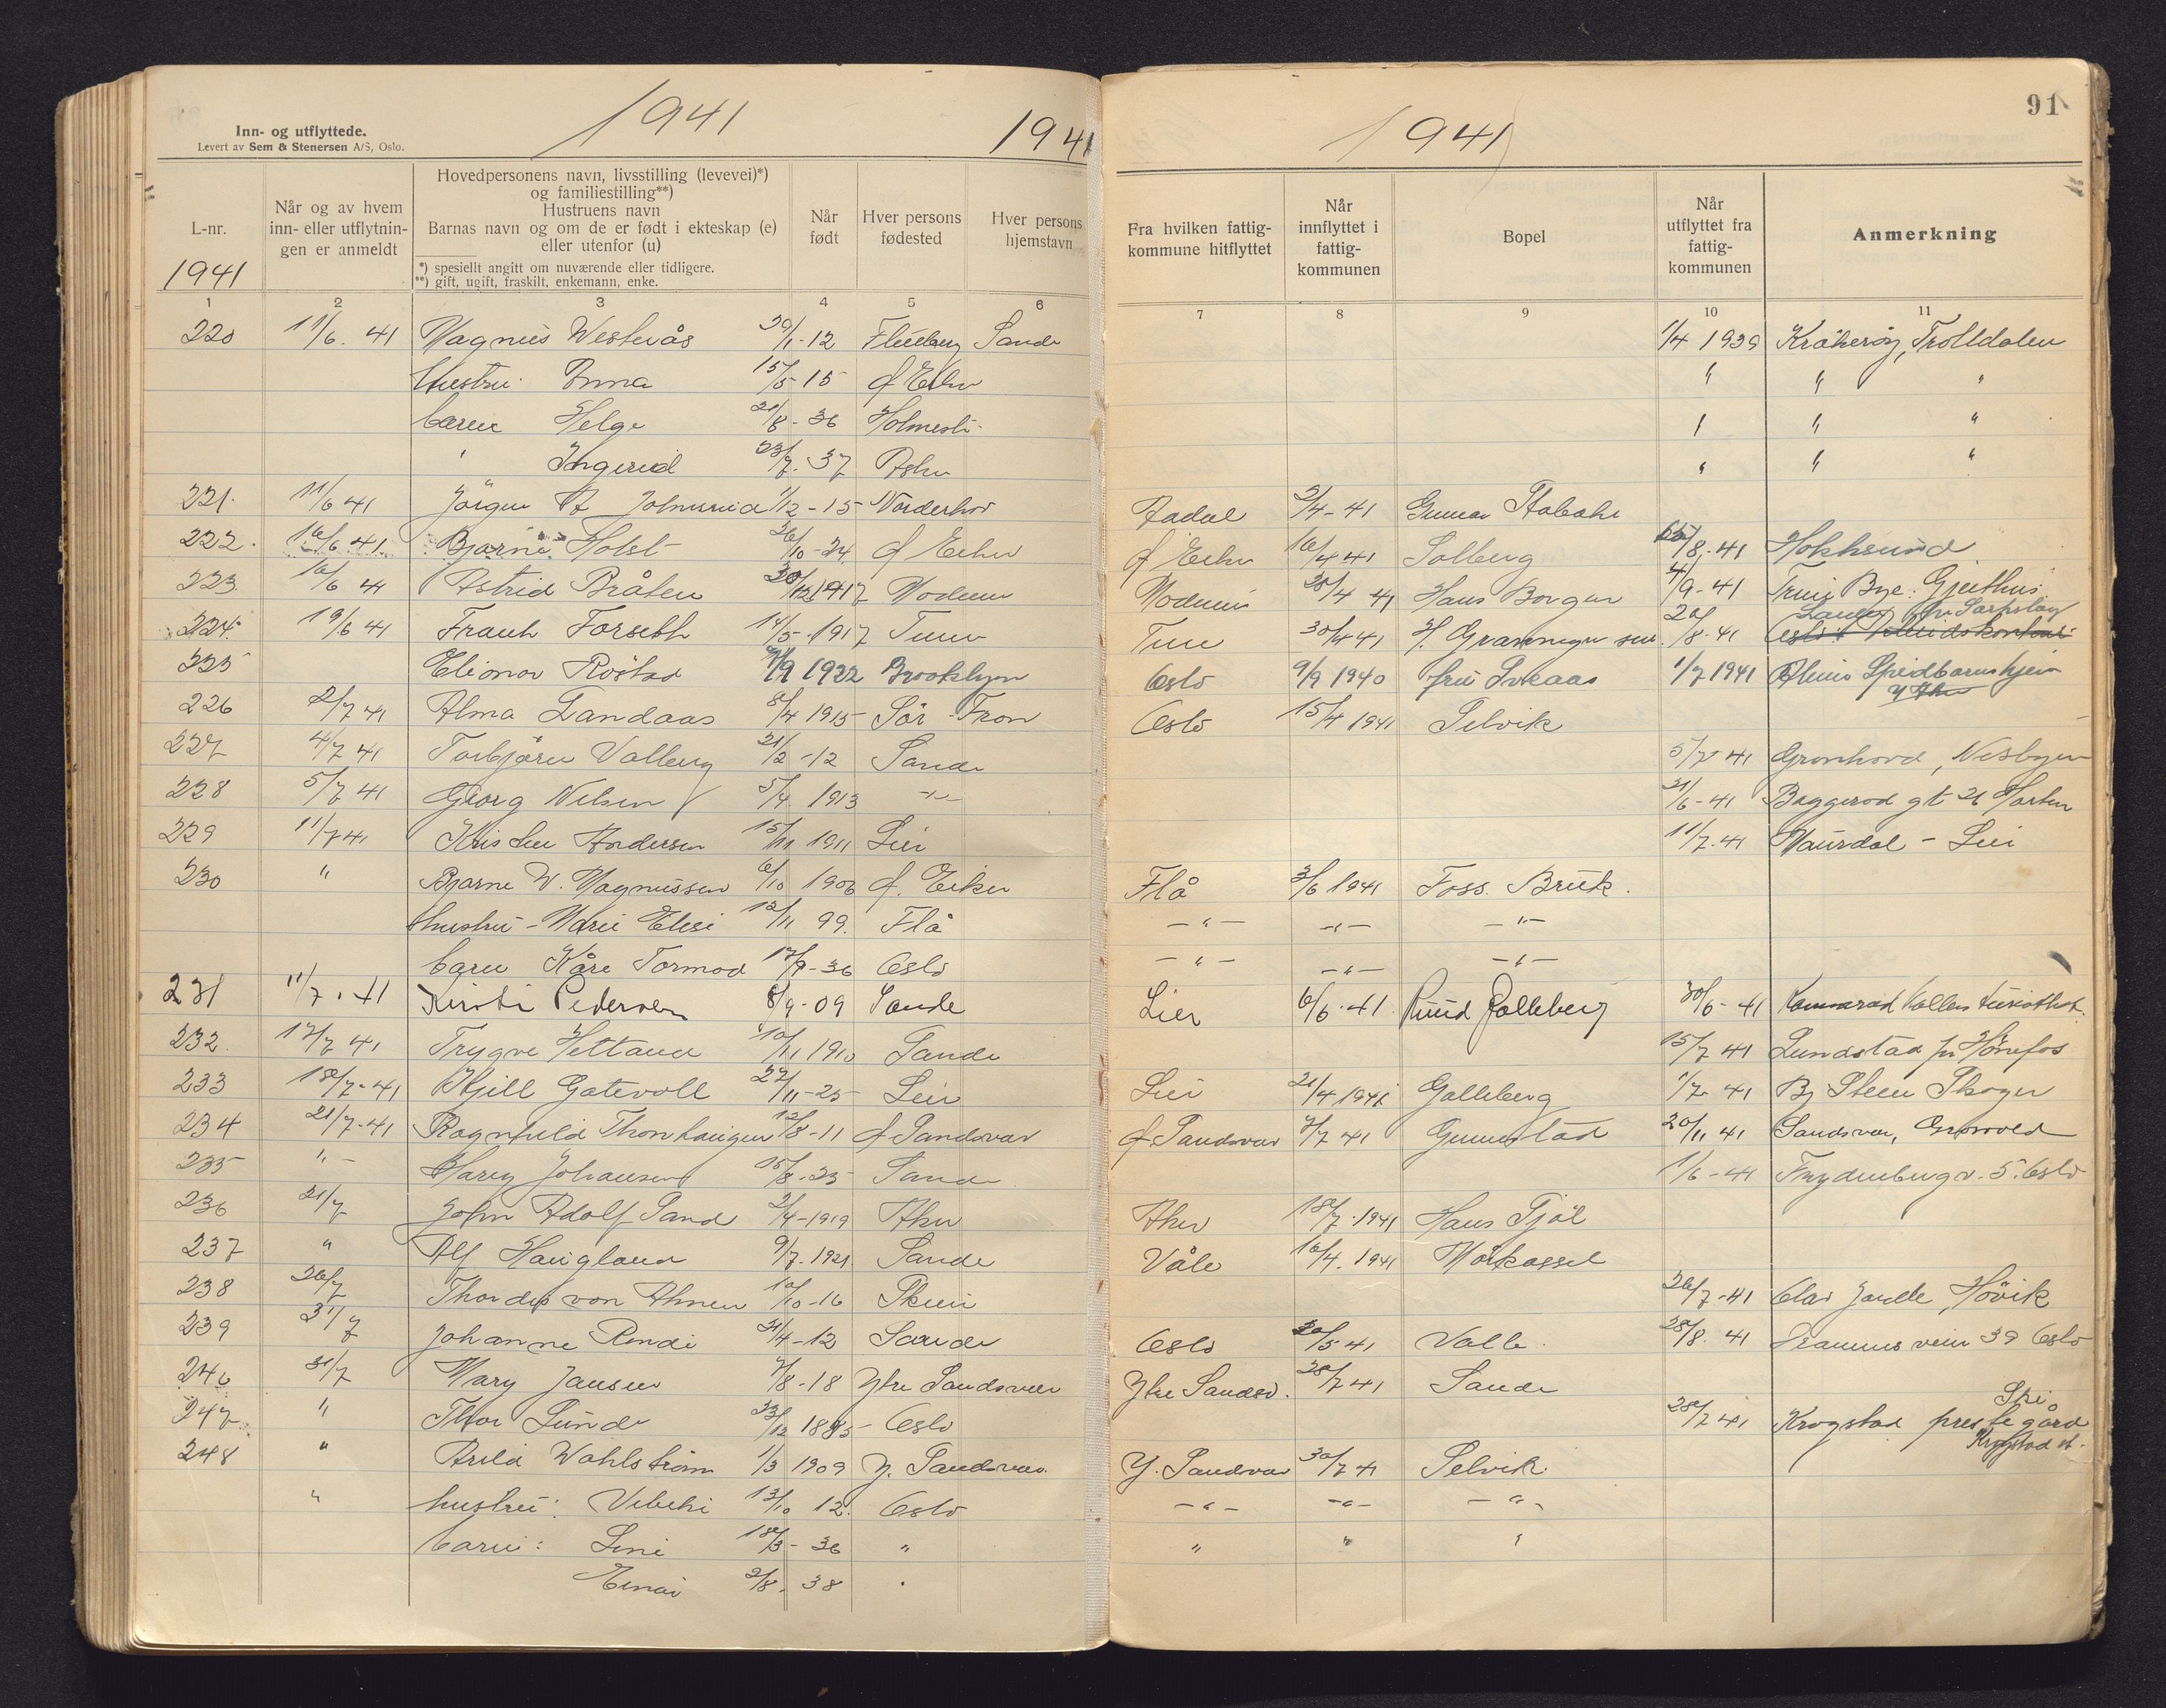 1941
1941
Inn- og utflyttede.
Levert av Sem & Stenersen A/S, Oslo.
L-nr.
1941
Når og av hvem inn- eller utflytnin-gen er anmeldt
Hovedpersonens navn, livsstilling (levevei)*)
og familiestilling**)
Hustruens navn
Barnas navn og om de er født i ekteskap (e)
eller utenfor (u)
*) spesiellt angitt om nuværende eller tidligere.
**) gift, ugift, fraskilt, enkemann, enke.
Når født
Hver persons fødested
Hver persons hjemstavn
1 2 3 4 5 6
220 11/6. 41 Magnus Westerås 29/1-12 Flesberg Sande
Hustru Emma 15/5 15 ø Eiker
barn Helge 21/8-36 Holmestr.
" Ingerid 23/7. 37 Asker
221. 11/6 41 Jörgen A 1/12-15 Norderhov
222. 16/6 41 Bjarne Holst 26/10-24 ø Eiker
223. 16/6 41 Astrid Bråten 30/12 1917 Modum
224. 19/6 41 Frank Forseth 14/5-1917 Tune
225 Elionor Röstad 7/9 1922 Brooklyn
226 2/7 41 Alma Landaas 8/4 1915 Sör-Fron
227 4/7 41 Torbjörn Valberg 21/2-12 Sande
228 5/7 41 Georg Nilsen 5/4 1913 -"-
229 11/7 41 Andersen 15/11 1911 Lier
230 " Bjarne W. Magnussen 6/10 1906 ø. Eiker
hustru - Marie Elise 12/11 99. Flå
barn Kåre Tormod 17/9-36 Oslo
231 11/7. 41 Kirsti Pedersen 8/9-09 Sande
232. 17/7 41 Trygve Hettand 10/11 1910 Sande
233 18/7-41 Kjell Gatevoll 22/11-25 Lier
234 21/7-41 Ragnhild Thonhaugen 12/8-11 ø Sandsvær
235 "- Harry Johansen 25/8-23 Sande
236 21/7 John Adolf Sand 2/4-1919 Asker
237 " Alf Haugland 9/7-1921 Sande
238 26/7 Thordis von Ahnen 10/10-16 Skien
239 31/7 Johanne Rendi 21/4-12 Sande
246 31/7 Mary Jansen 7/8-18 Ytre Sandsvær
247 " Thor Lunde 23/12 1885 Oslo
248 " Arild Wahlström 1/3 1909 Y. Sandsvær.
" hustru: Vibeke 13/10 12. Oslo
barn: Line 18/3-36 "
Einar 2/8. 38 "
1941
91
Fra hvilken fattig-kommune hitflyttet
Når innflyttet i fattig-kommunen
Bopel
Når utflyttet fra fattig-kommunen
Anmerkning
7 8 9 10 11
1/4 1939 Kråkeröy, Trolldalen
" " "
" " "
" " "
Aadal 2/4-41 Gunnar Stabæk
ø Eiker 16/4 41 Solberg 15/8-41 Hokksund
Modum 28/4 41 Hans Borgen 4/9-41 Bye. Gjeithus
Tune 30/4 41 H. Granmegn sen. 20/8-41 Sarpsborg
Oslo 9/9 1940 fru Sveaas 1/7 1941 Spedbarnshjem
Y Aker
Oslo 15/4 1941 Selvik
5/7-41 Grønhovd, Nesbyen
21/6-41 Baggerød gt 26 Horten
11/7-41 - Lier
Flå 3/6 1941 Foss. Bruk.
-"- -"- -"-
-"- -"- -"-
Lier 6/6-41 Ruud Galleberg 30/6-41
15/7 41 Lundstad pr Hönefos
Lier 21/4 1941 Galleberg 1/7-41 Bj Steen Skoger
ø Sandsvær 7/7 41 Gunnestad 20/11 41 Sandsvær,
1/6-41 Frydenbergv. 5. Oslo
Asker 18/7-1941 Hans Tjöl
Våle 16/4. 1941
26/7-41 Olav Jarelle, Hövik
Oslo 20/5 41 Valle. 28/8. 41 veien 39 Oslo
Ytre Sandsv. 28/7 41 Sande
28/7 41 Krogstad prestegård Ski
Krogstad st.
Y. Sandsvær 30/7 41 Selvik
-"- -"- -"-
" " "